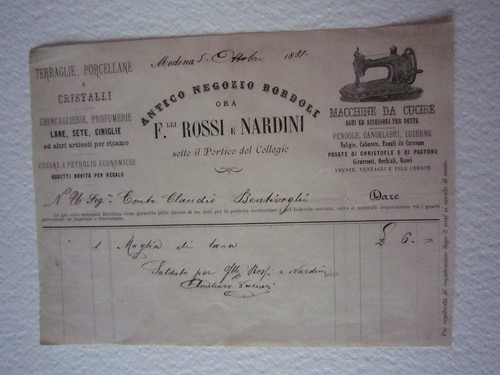 Modena 5 Ottobre 1881
TERRAGLIE, PORCELLANE
E
CRISTALLI
CHINCAGLIERIE, PROFUMERIE
LANE, SETE, CINIGLIE
ed altri articoli per ricamo
CUCINE A PETROLIO ECONOMICHE
OGGETTI NOVITÀ PER REGALO
ANTICO NEGOZIO BORDOLI
ORA
F.LLI ROSSI E NARDINI
sotto il Portico del Collegio
MACCHINE DA CUCIRE
AGHI ED ACCESSORI PER DETTE
PENDOLE, CANDELABRI, LUCERNE
Valigie, Cabarets, Fanali da Carrozza
POSATE DI CHRISTOFLE E DI PACFONG
Giuocattoli, Occhiali, Rasoi
VENTAGLI E TELE CERATE
N. U. Sig. Conte Claudio Bentivoglio Dare
1 Maglia di lana £ 6. —
Saldato per f.lli Rossi e Nardini